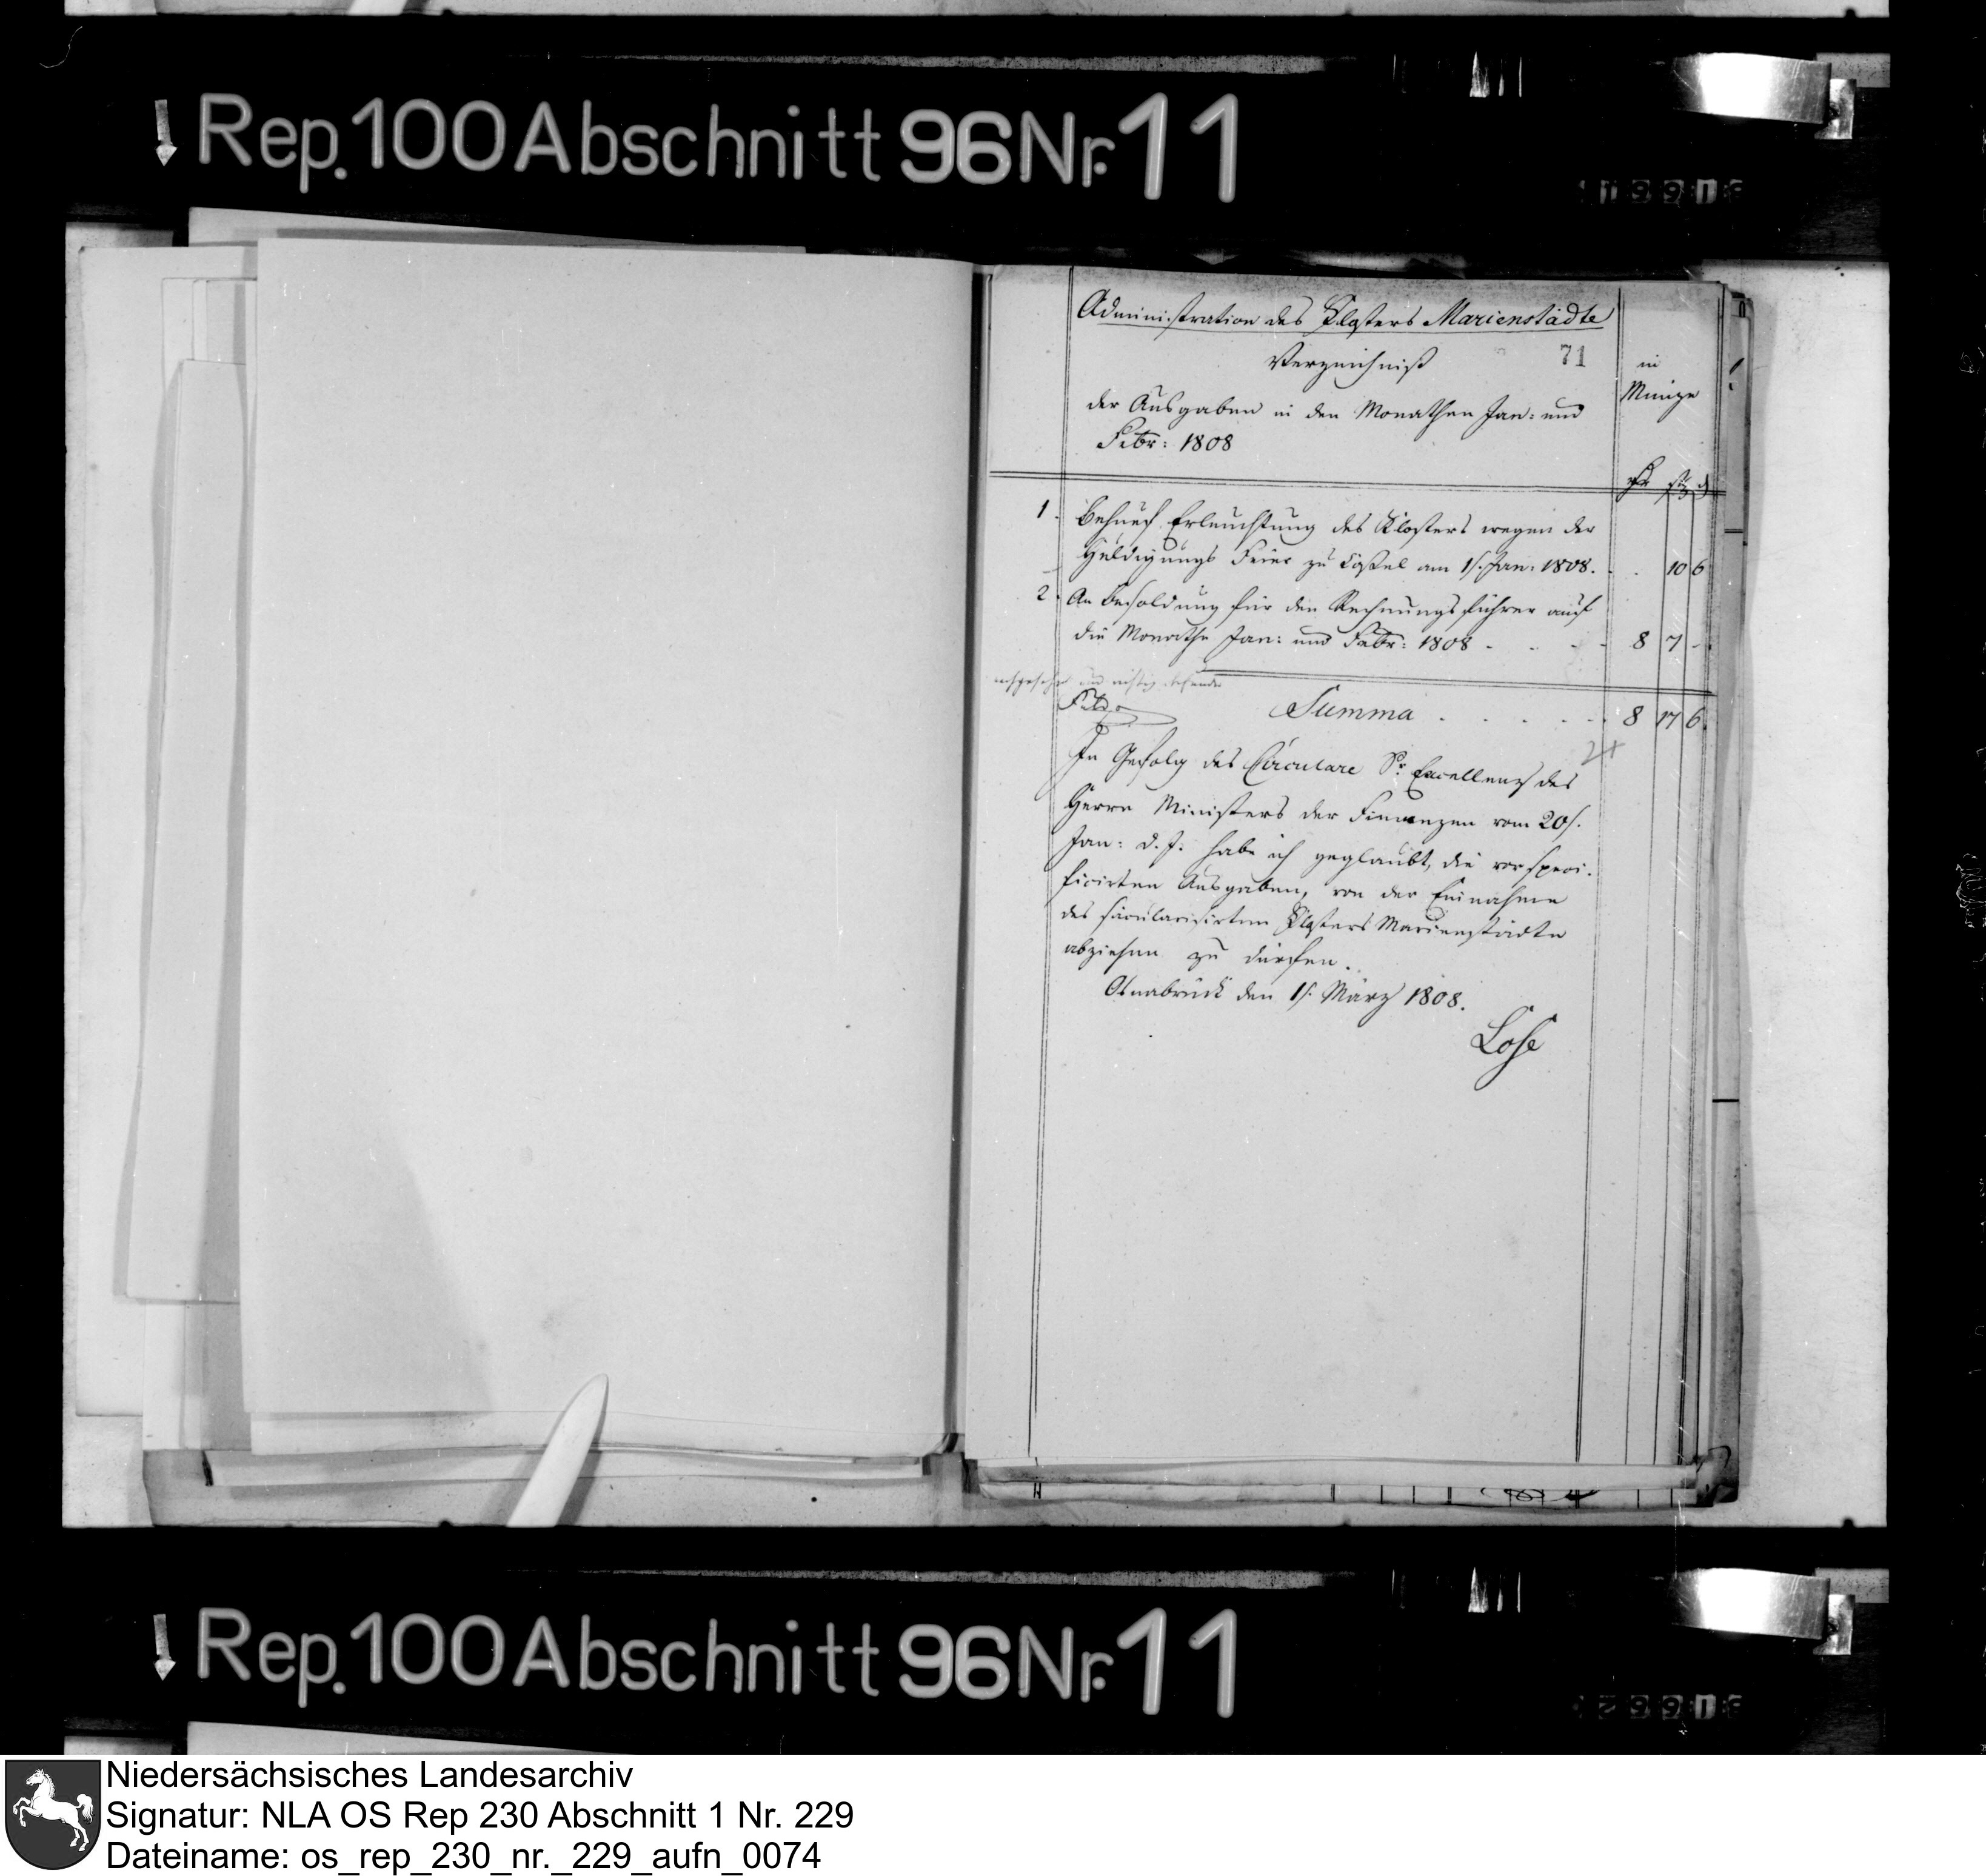 Rep. 100 Abschnitt 96 Nr. 11
Administration des Klosters Marienstädte
Verzeichniß
71
in
Münze
der Ausgaben in den Monathen Jan: und
Febr: 1808
1. Behuef Erleuchtung des Klosters wegen der
Huldigungs Feier zu Cassel am 1s. Jan: 1808. . . 10 6
2. An Besoldung für den Rechnungsführer auf
die Monathe Jan: und Febr: 1808 - . . - - 8 7 -
nachgesehen und richtig befunden
Summa . . . . . - 8 17 6
In Gefolg des Circulare Sr. Excellenz des
Herrn Ministers der Finanzen vom 20s.
Jan: d. J. habe ich geglaubt, die vorspeci-
ficirten Ausgaben, von der Einnahme
des säcularisirten Klosters Marienstädte
abziehen zu dürfen.
Osnabrück den 1s. März 1808.
Lose
Rep. 100 Abschnitt 96 Nr. 11
Niedersächsisches Landesarchiv
Signatur: NLA OS Rep 230 Abschnitt 1 Nr. 229
Dateiname: os_rep_230_nr._229_aufn_0074